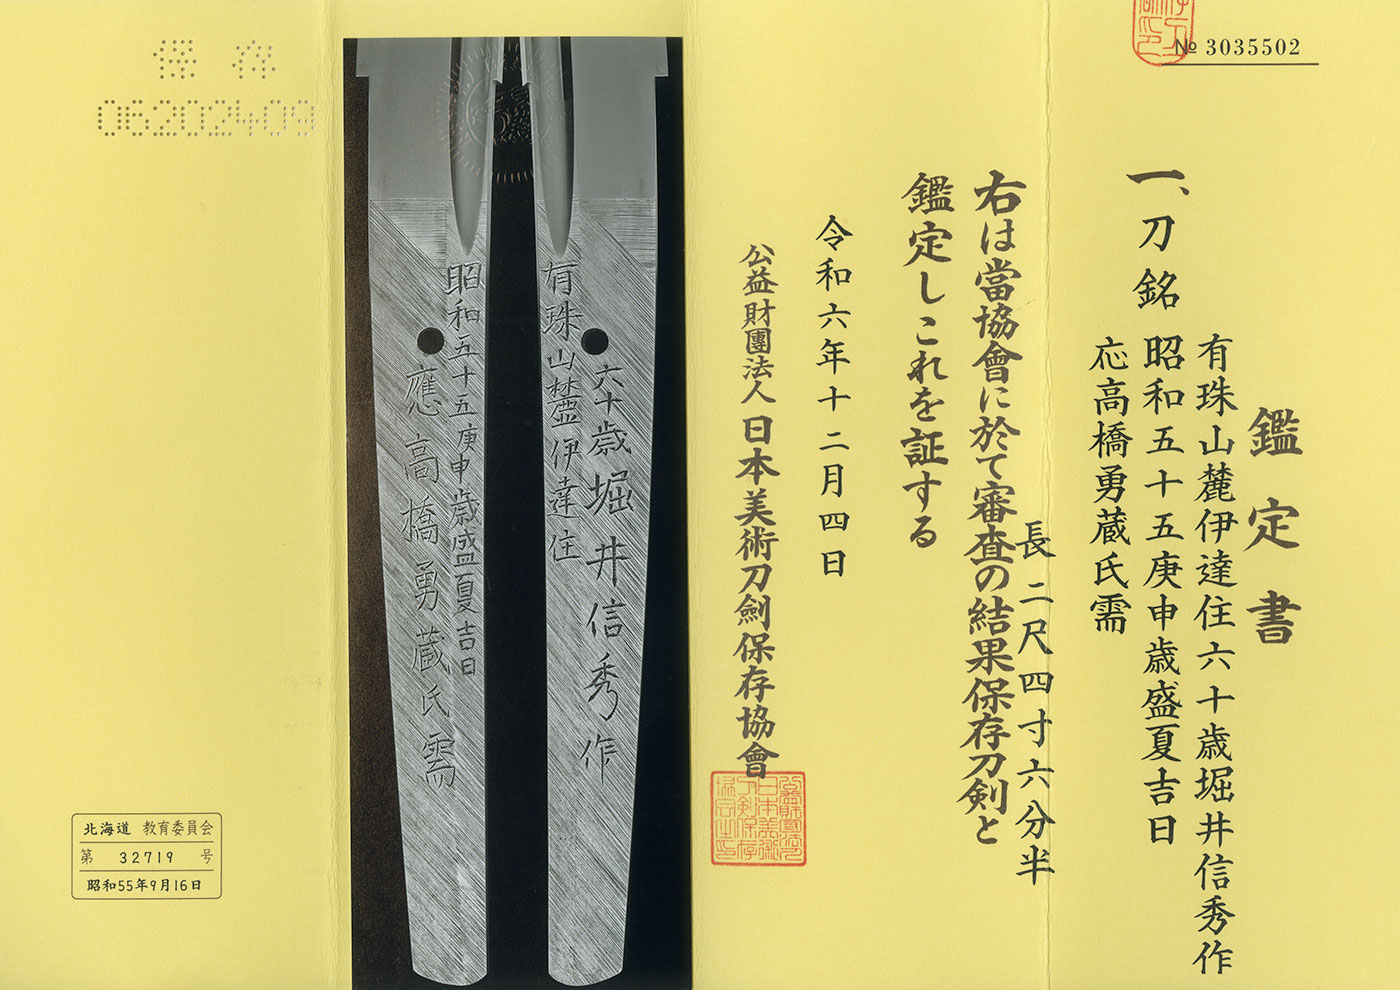 № 3035502
鑑定書
一、刀 銘
有珠山麓伊達住六十歳堀井信秀作
昭和五十五庚申歳盛夏吉日
応高橋勇蔵氏需
長二尺四寸六分半
右は當協會に於て審査の結果保存刀剣と
鑑定しこれを証する
令和六年十二月四日
公益財團法人日本美術刀劍保存協會
六十歳堀井信秀作
有珠山麓伊達住
昭和五十五庚申歳盛夏吉日
應高橋勇蔵氏需
保存
06202409
北海道 教育委員会
第 32719 号
昭和55年9月16日